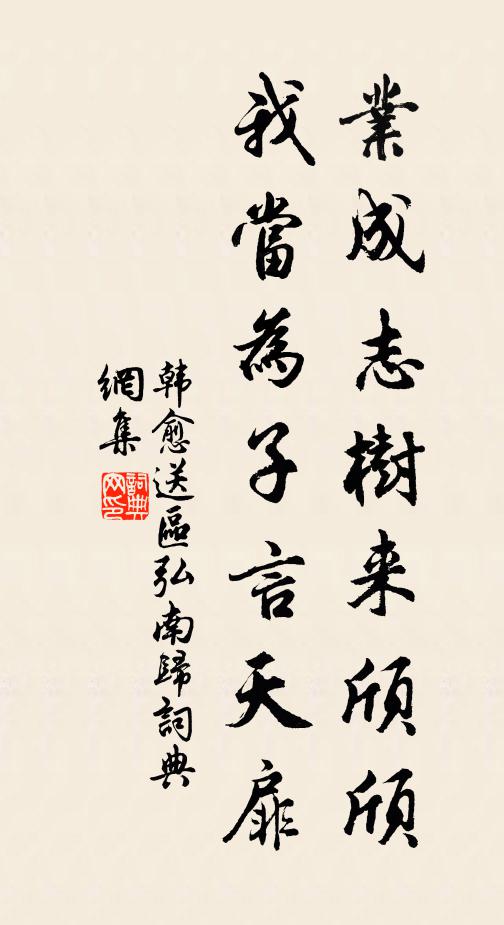 業成志樹来頎頎
我當為子言天扉
韩愈送區弘南歸詞典
網集
詞典
网印